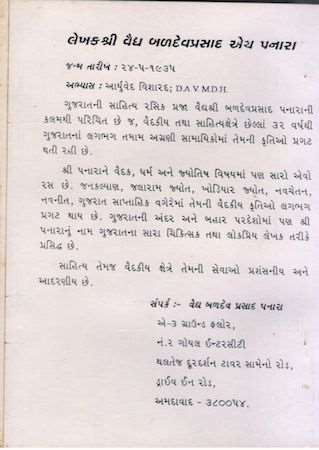 લેખકશ્રી વૈદ્ય બળદેવપ્રસાદ એચ પનારા
જન્મ તારીખ : ૨૪-૫-૧૯૩૫
અભ્યાસ : આર્યુવેદ વિશારદ; D.A.V.M.D.H.
ગુજરાતની સાહિત્ય રસિક પ્રજા વૈદ્યશ્રી બળદેવપ્રસાદ પનારાની
કલમથી પરિચિત છે જ, વૈદકીય તથા સાહિત્યક્ષેત્રે છેલ્લાં ૩૨ વર્ષથી
ગુજરાતનાં લગભગ તમામ અગ્રણી સામાયિકોમાં તેમની કૃતિઓ પ્રગટ
થતી રહી છે.
શ્રી પનારાને વૈદક, ધર્મ અને જ્યોતિષ વિષયમાં પણ સારો એવો
રસ છે. જનકલ્યાણ, જલારામ જ્યોત, ખોડિયાર જ્યોત, નવચેતન,
નવનીત, ગુજરાત સાપ્તાહિક વગેરેમાં તેમની વૈદકીય કૃતિઓ લગભગ
પ્રગટ થાય છે. ગુજરાતની અંદર અને બહાર પરદેશોમાં પણ શ્રી
પનારાનું નામ ગુજરાતના સારા ચિકિત્સક તથા લોકપ્રિય લેખક તરીકે
પ્રસિદ્ધ છે.
સાહિત્ય તેમજ વૈદકીય ક્ષેત્રે તેમની સેવાઓ પ્રશંસનીય અને
આદરણીય છે.
સંપર્ક :- વૈદ્ય બળદેવ પ્રસાદ પનારા
એ-૩ ગ્રાઉન્ડ ફ્લોર,
નં.૨ ગોયલ ઈન્ટરસીટી
થલતેજ દુરદર્શન ટાવર સામેનો રોડ,
ડ્રાઈવ ઈન રોડ,
અમદાવાદ - ૩૮૦૦૫૪.